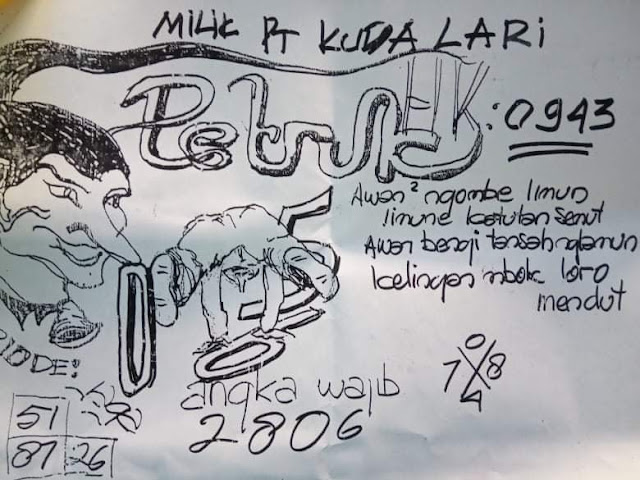 MILIK PT KUDA LARI
Petruk
EIK: 0943
Awan² ngombe limun
limune katutan semut
Awan bengi tansah nglamun
kelingan mbok loro
mendut
ODE!
angka wajib
2806
0
7 8
4
51
87 26